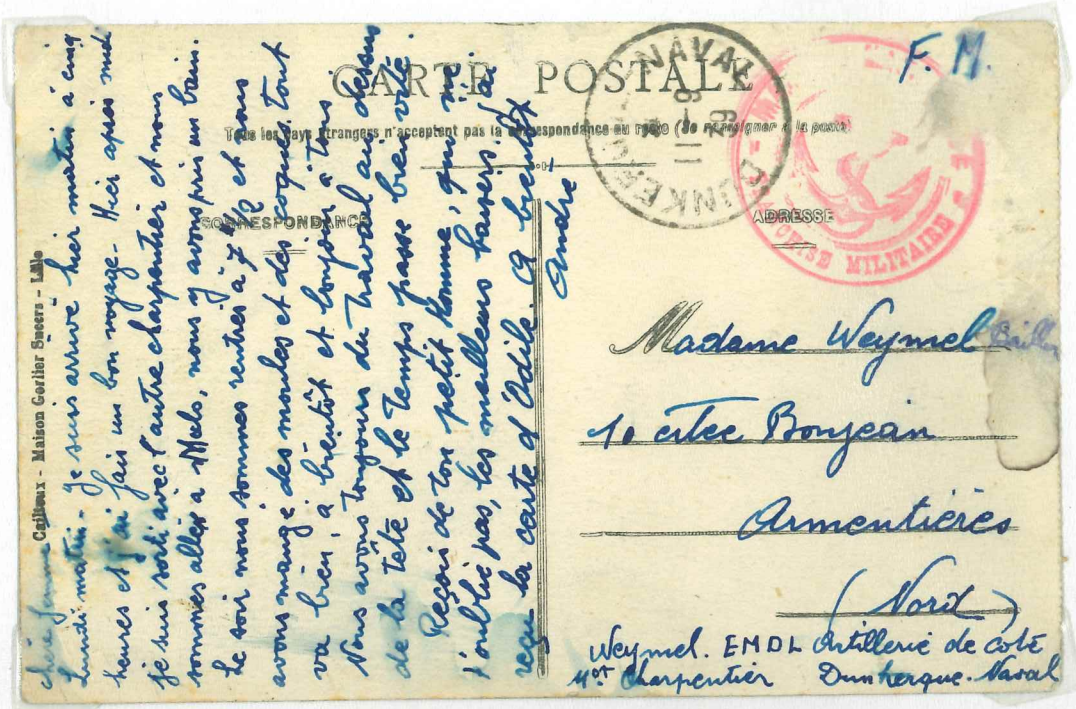 CARTE POSTALE
Tous les pays étrangers n'acceptent pas la correspondance au recto (Se renseigner à la poste)
CORRESPONDANCE
ADRESSE
F. M.
NAVAL
8 - 11
39
DUNKERQUE
FRANCHISE MILITAIRE
Cailteux - Maison Gorlier Succrs - Lille
chère femme
Lundi matin - Je suis arrivé hier matin à cinq
heures et j'ai fais un bon voyage - Hier après midi
je suis sorti avec l'autre charpentier et nous
sommes allés a Mels, nous y avons pris un bain.
Le soir nous sommes rentrés à 7 h ½ et nous
avons mangé des moules et des coques, tout
va bien, à bientôt et bonjour à tous
Nous avons toujours du travail au dessus
de la tête et le temps passe bien vite.
Reçois de ton petit homme, qui ne
t'oublie pas, les meilleurs baisers. J'ai
reçu la carte d'Odile. A bientôt
André
Madame Weymel
10 citée Bonjean
Armentières
(Nord)
Weymel. EMDL Artillerie de côte
Mot Charpentier Dunkerque. Naval